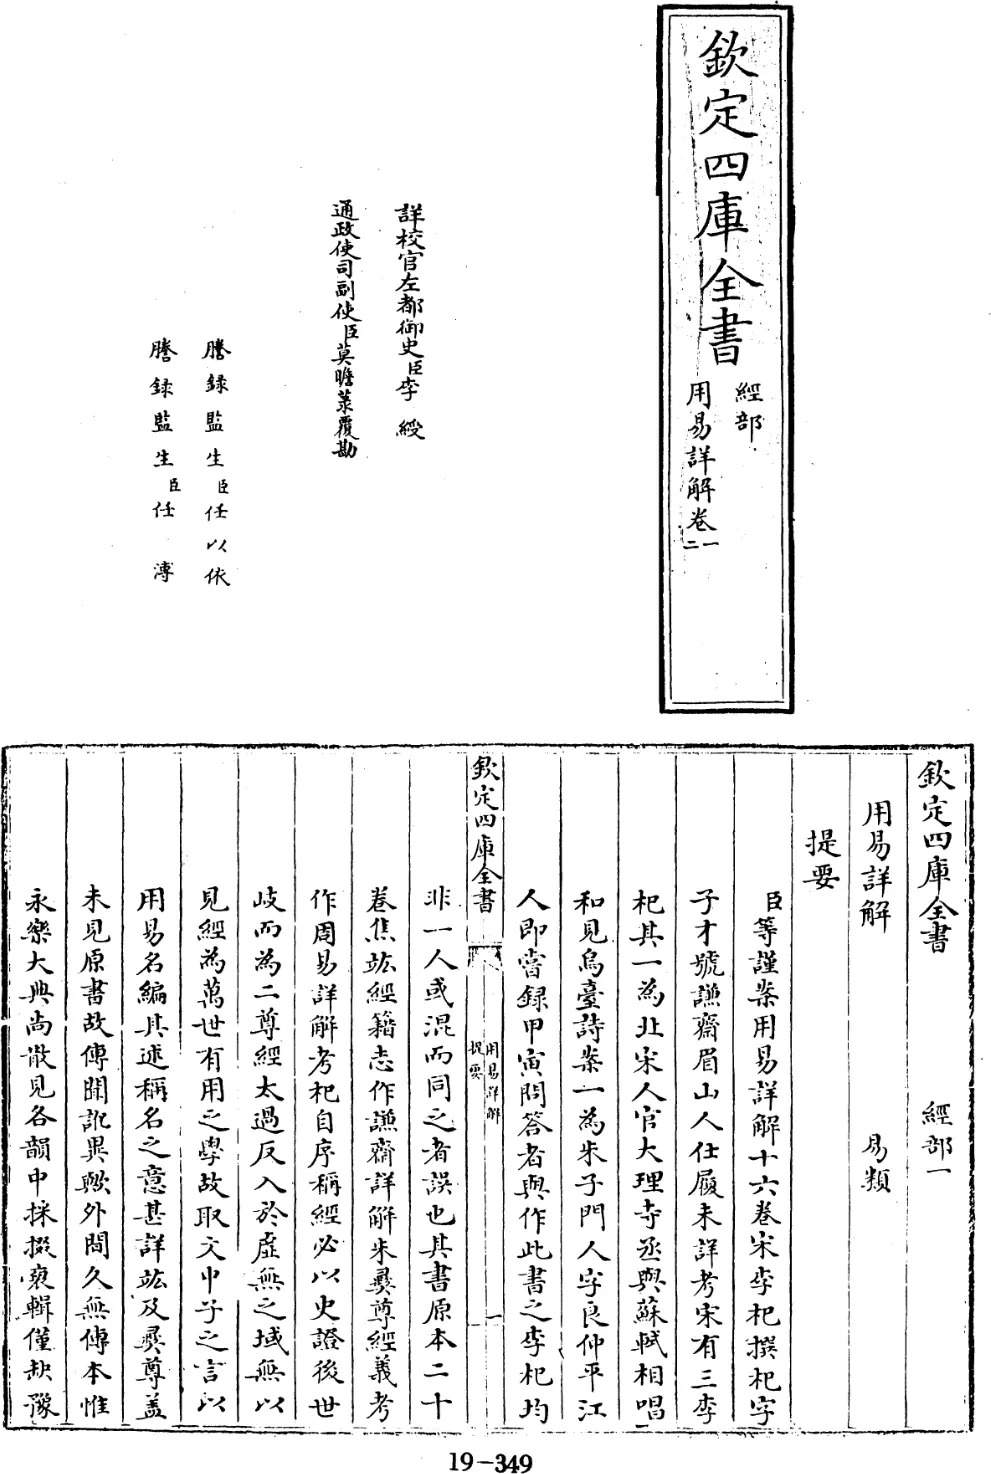 欽定四庫全書
經部
用易詳解卷一
二
詳校官左都御史臣李綬
通政使司副使臣莫瞻菉覆勘
謄錄監生臣任以依
謄錄監生臣任溥
欽定四庫全書 經部一
用易詳解 易類
提要
臣等謹案用易詳解十六卷宋李杞撰杞字
子才號謙齋眉山人仕履未詳考宋有三李
杞其一為北宋人官大理寺丞與蘇軾相唱
和見烏臺詩案一為朱子門人字良仲平江
人即嘗録甲寅問答者與作此書之李杞均
欽定四庫全書 用易詳解 提要 一
非一人或混而同之者誤也其書原本二十
卷焦竑經籍志作謙齋詳解朱彛尊經義考
作周易詳解考杞自序稱經必以史證後世
岐而為二尊經太過反入於虛無之域無以
見經為萬世有用之學故取文中子之言以
用易名編其述稱名之意甚詳竑及彛尊盖
未見原書故傳聞訛異歟外間久無傳本惟
永樂大典尚散見各韻中採掇裒輯僅缺豫
19-349